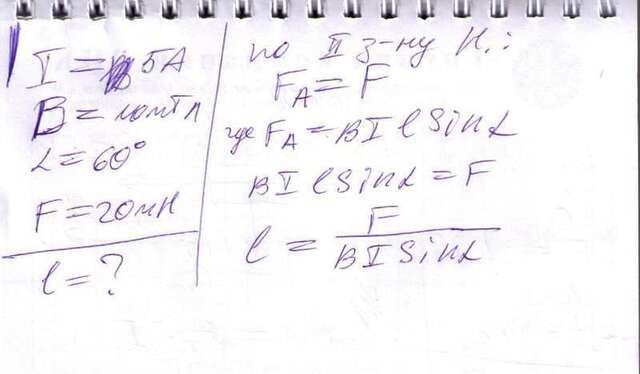 I = 5А
B = 10мТл
α = 60°
F = 20мН
l = ?
по II з-ну Н.:
F_A = F
где F_A = BIl sinα
BIl sinα = F
l = F / BI sinα